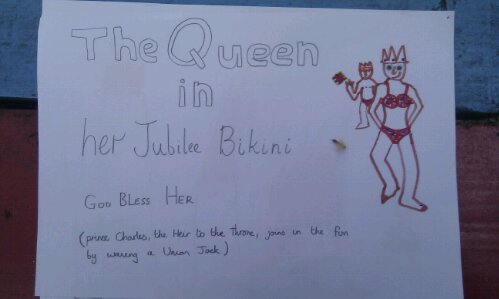 The Queen
in
her Jubilee Bikini
GOD BLESS HER
(prince Charles, the Heir to the Throne, joins in the fun
by waving a Union Jack)